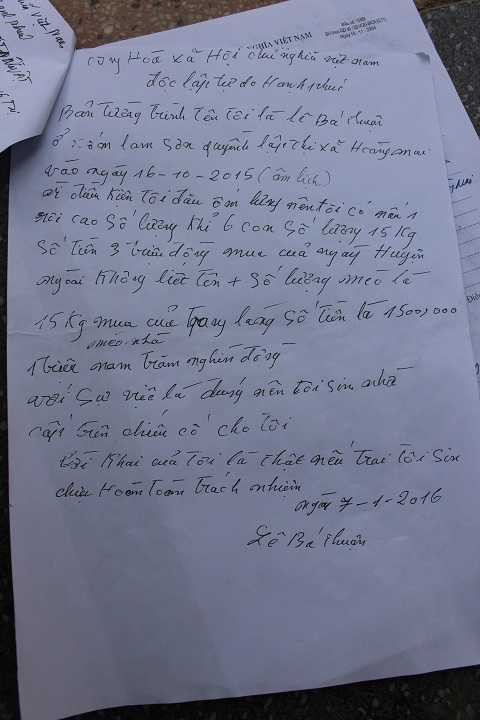 NGHĨA VIỆT NAM
cộng Hoà xã Hội chủ nghĩa việt nam
độc lập tự do Hạnh phúc
Bản tường trình tên tôi là lê Bá thuận
ở xóm lam Sơn quỳnh lập thị xã Hoàng mai
vào ngày 16-10-2015 (âm lịch)
tôi có nấu 1
nồi cao Số lượng khỉ 6 con Số lượng 15 Kg
Số tiền 3 triệu đồng mua của người Huyện
ngoài không biết tên + Số lượng mèo là
15 Kg mua của trong làng Số tiền là 1500,000
mèo nhà
1 triệu nam trăm nghìn đồng
với Sự việc là đúng nên tôi Sin nhà
cấp trên chiếu cố cho tôi
Lời Khai của tôi là thật nếu trai tôi Sin
chịu Hoàn toàn trách nhiệm
ngày 7-1-2016
Lê Bá thuận